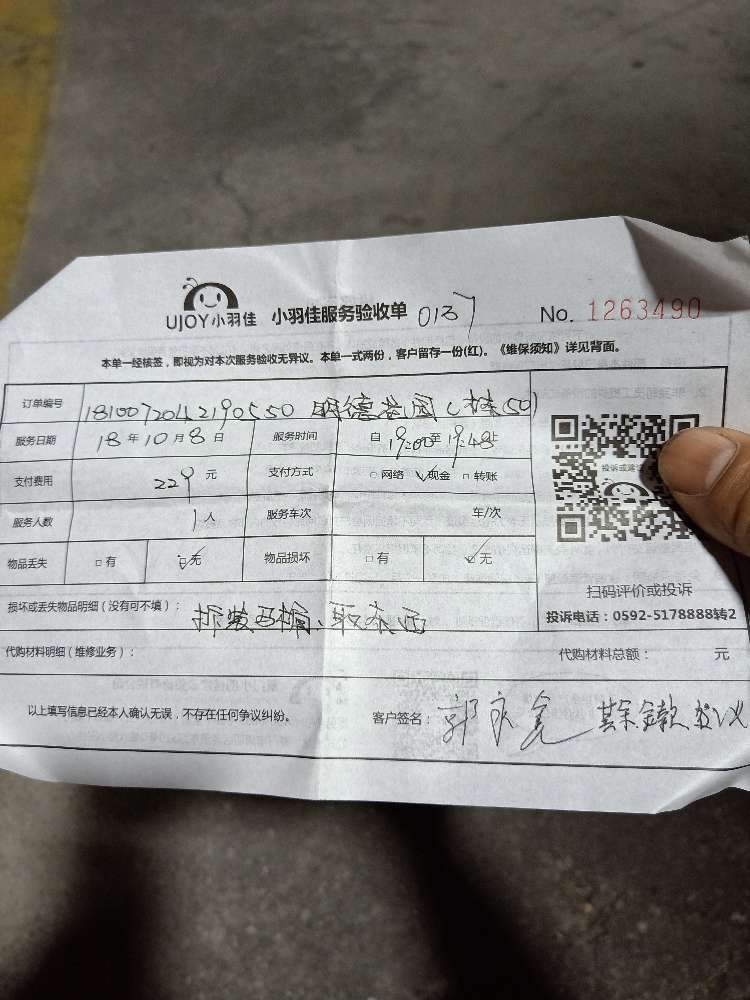 UJOY小羽佳 小羽佳服务验收单 0137 No. 1263490
本单一经核签，即视为对本次服务验收无异议。本单一式两份，客户留存一份(红)。《维保须知》详见背面。
订单编号 1810072042190550 明德花园C栋501
服务日期 18年10月8日 服务时间 自19:00至19:48止
支付费用 229元 支付方式 网络 现金 转账
服务人数 1人 服务车次 车/次
物品丢失 有 无 物品损坏 有 无
投诉或建议
扫码评价或投诉
投诉电话：0592-5178888转2
损坏或丢失物品明细（没有可不填）： 拆装马桶、取东西
代购材料明细（维修业务）： 代购材料总额： 元
以上填写信息已经本人确认无误，不存在任何争议纠纷。 客户签名： 郭